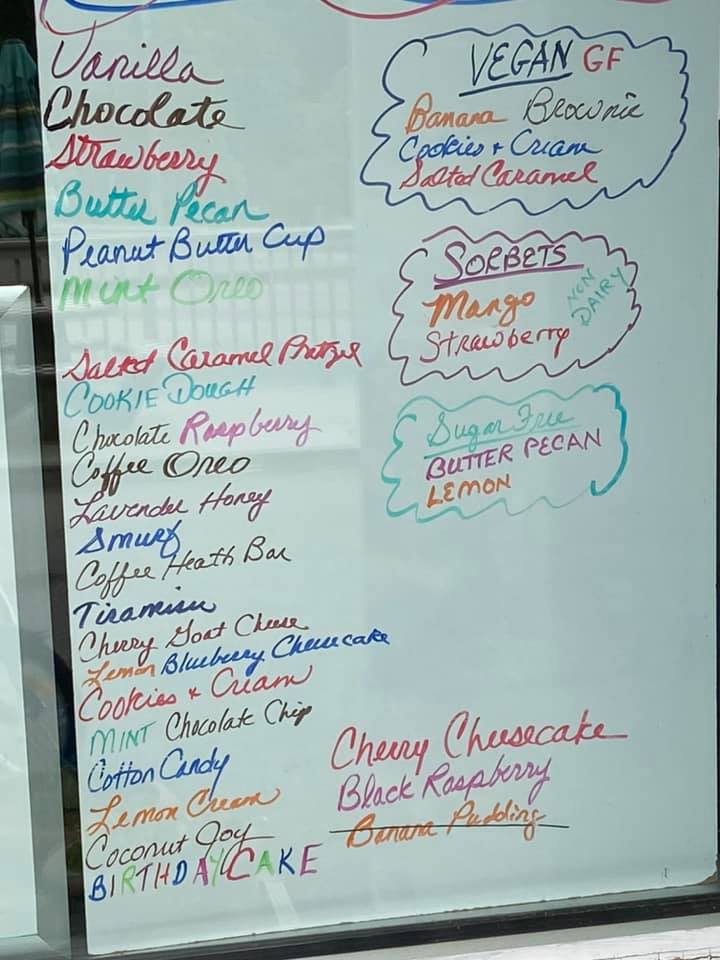 Vanilla
Chocolate
Strawberry
Butter Pecan
Peanut Butter Cup
Mint Oreo
Salted Caramel Pretzel
COOKIE DOUGH
Chocolate Raspberry
Coffee Oreo
Lavender Honey
Smurf
Coffee Heath Bar
Tiramisu
Cherry Goat Cheese
Lemon Blueberry Cheesecake
Cookies + Cream
MINT Chocolate Chip
Cotton Candy
Lemon Cream
Coconut Joy
BIRTHDAY CAKE
Cherry Cheesecake
Black Raspberry
Banana Pudding
VEGAN GF
Banana Brownie
Cookies + Cream
Salted Caramel
SORBETS
Mango
Strawberry
NON
DAIRY
Sugar Free
BUTTER PECAN
LEMON